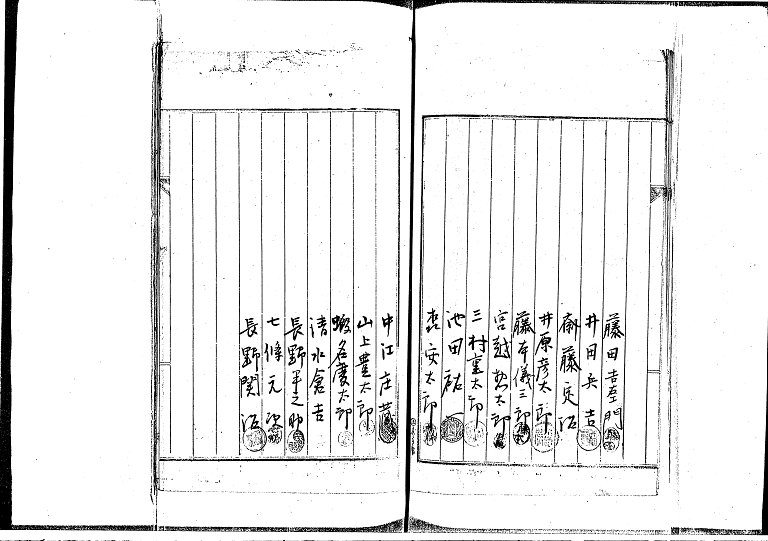 藤田吉左門
井田兵吉
斎藤定治
井原彦太郎
藤本儀三郎
宮越 太郎
三村重太郎
池田 祐
森 安太郎
中江庄蔵
山上豊太郎
蝦名慶太郎
清水倉吉
長野半之助
七條元次
長野関治